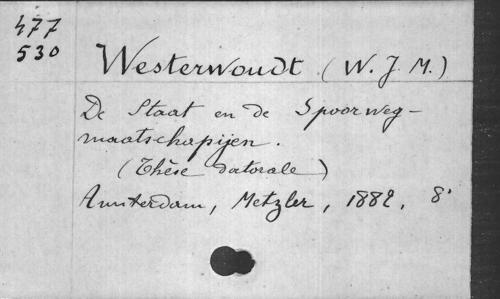 477
530
Westerwoudt (W. J. M.)
De Staat en de Spoorweg-
maatschapijen.
(Thèse datorale)
Amsterdam, Metzler, 1882, 8°